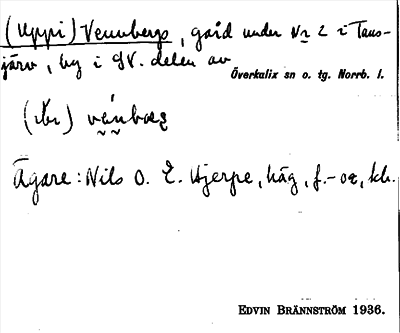 (Uppi) Vennbergs, gård under Nr 2 i Tans-
järv, by i SV. delen av
Överkalix sn o. tg. Norrb. l.
Ägare: Nils O. E. Hjerpe, häg, f.- o
EDVIN BRÄNNSTRÖM 1936.